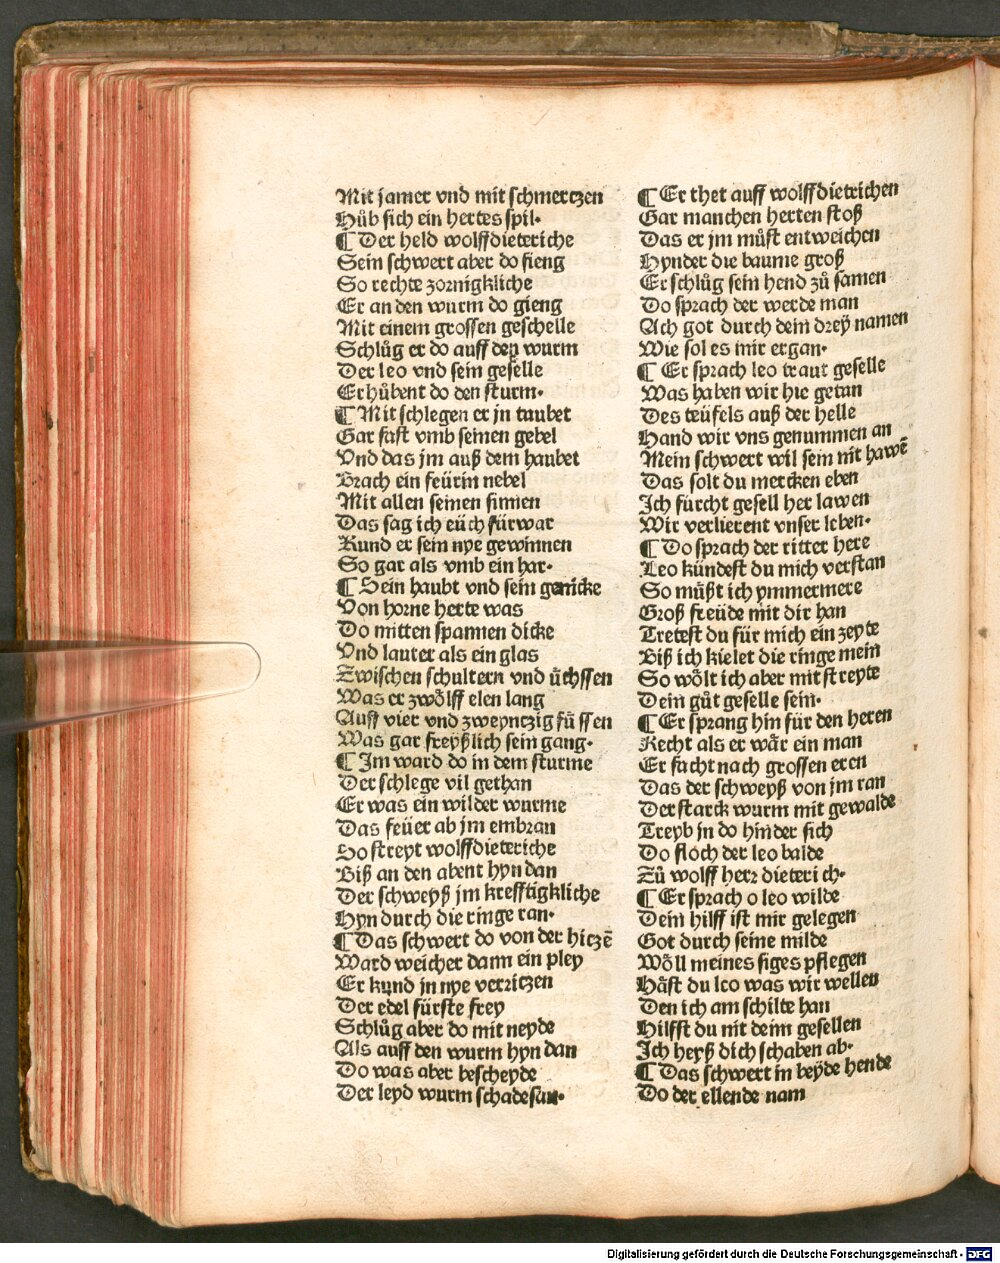 Mit jamer vnd mit schmerczen
Hůb sich ein hertes spil·
¶ Der held wolffdieteriche
Sein schwert aber do fieng
So rechte zornigkliche
Er an den wurm do gieng
Mit einem grossen geschelle
Schlůg er do auff den wurm
Der leo vnd sein geselle
Erhůbent do den sturm·
¶ Mit schlegen er jn taubet
Gar fast vmb seinen gebel
Vnd das jm auß dem haubet
Brach ein feürin nebel
Mit allen seinen sinnen
Das sag ich eüch fürwar
Kund er sein nye gewinnen
So gar als vmb ein har·
¶ Sein haubt vnd sein genicke
Von horne herte was
Do mitten spannen dicke
Vnd lauter als ein glas
Zwischen schultern vnd üchssen
Was er zwölff elen lang
Auff vier vnd zweynczig füssen
Was gar freyßlich sein gang·
¶ Im ward do in dem sturme
Der schlege vil gethan
Er was ein wilder wurme
Das feüer ab jm embran
So streyt wolffdieteriche
Biß an den abent hyn dan
Der schweyß jm krefftigkliche
Hyn durch die ringe ran·
¶ Das schwert do von der hiczē
Ward weicher dann ein pley
Er kund jn nye verriczen
Der edel fürste frey
Schlůg aber do mit neyde
Als auff den wurm hyn dan
Do was aber bescheyde
Der leyd wurm schadesan·
¶ Er thet auff wolffdieterichen
Gar manchen herten stoß
Das er jm můst entweichen
Hynder die baume groß
Er schlůg sein hend zů samen
Do sprach der werde man
Ach got durch dein dreÿ namen
Wie sol es mir ergan·
¶ Er sprach leo traut geselle
Was haben wir hie getan
Des teüfels auß der helle
Hand wir vns genummen an
Mein schwert wil sein nit hawē
Das solt du mercken eben
Ich fürcht gesell her lawen
Wir verlierent vnser leben·
¶ Do sprach der ritter here
Leo kündest du mich verstan
So müßt ich ymmermere
Groß freüde mit dir han
Tretest du für mich ein zeyte
Biß ich kielet die ringe mein
So wölt ich aber mit streyte
Dein gůt geselle sein·
¶ Er sprang hin für den heren
Recht als er wär ein man
Er facht nach grossen eren
Das der schweyß von jm ran
Der starck wurm mit gewalde
Treyb jn do hinder sich
Do floch der leo balde
Zů wolff herr dieterich·
¶ Er sprach o leo wilde
Dein hilff ist mir gelegen
Got durch seine milde
Wöll meines siges pflegen
Häst du leo was wir wellen
Den ich am schilte han
Hilffst du nit deim gesellen
Ich heyß dich schaben ab·
¶ Das schwert in beÿde hende
Do der ellende nam
Digitalisierung gefördert durch die Deutsche Forschungsgemeinschaft - DFG